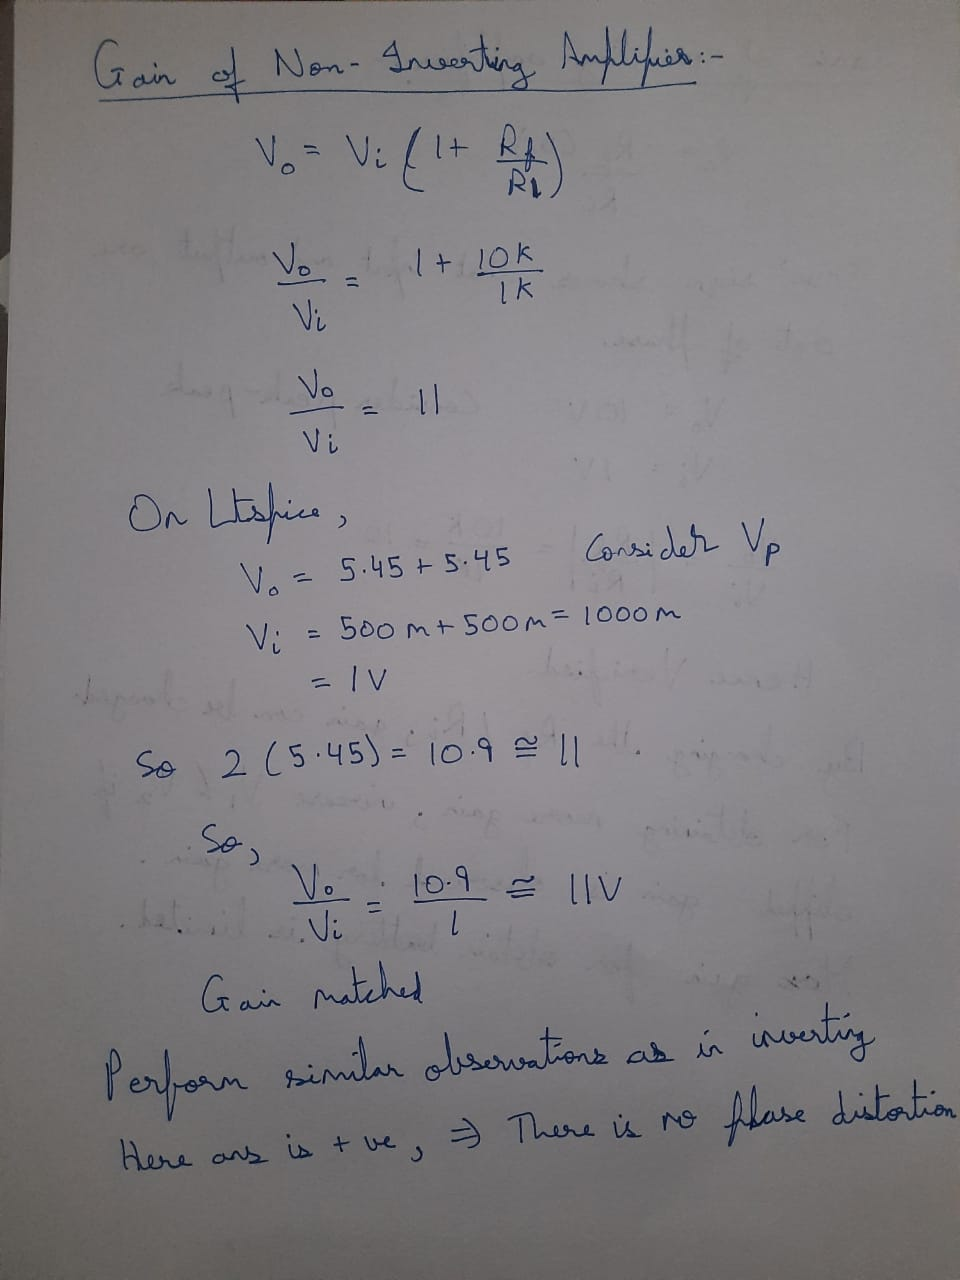 Gain of Non-Inverting Amplifier:-
Vo = Vi (1 + Rf/R1)
Vo/Vi = 1 + 10K/1K
Vo/Vi = 11
On Ltspice,
Vo = 5.45 + 5.45 Consider Vp
Vi = 500m + 500m = 1000m
= 1V
So 2 (5.45) = 10.9 ≅ 11
So,
Vo/Vi = 10.9/1 ≅ 11V
Gain matched
Perform similar observations as in inverting
Here ans is +ve, ⇒ There is no phase distortion